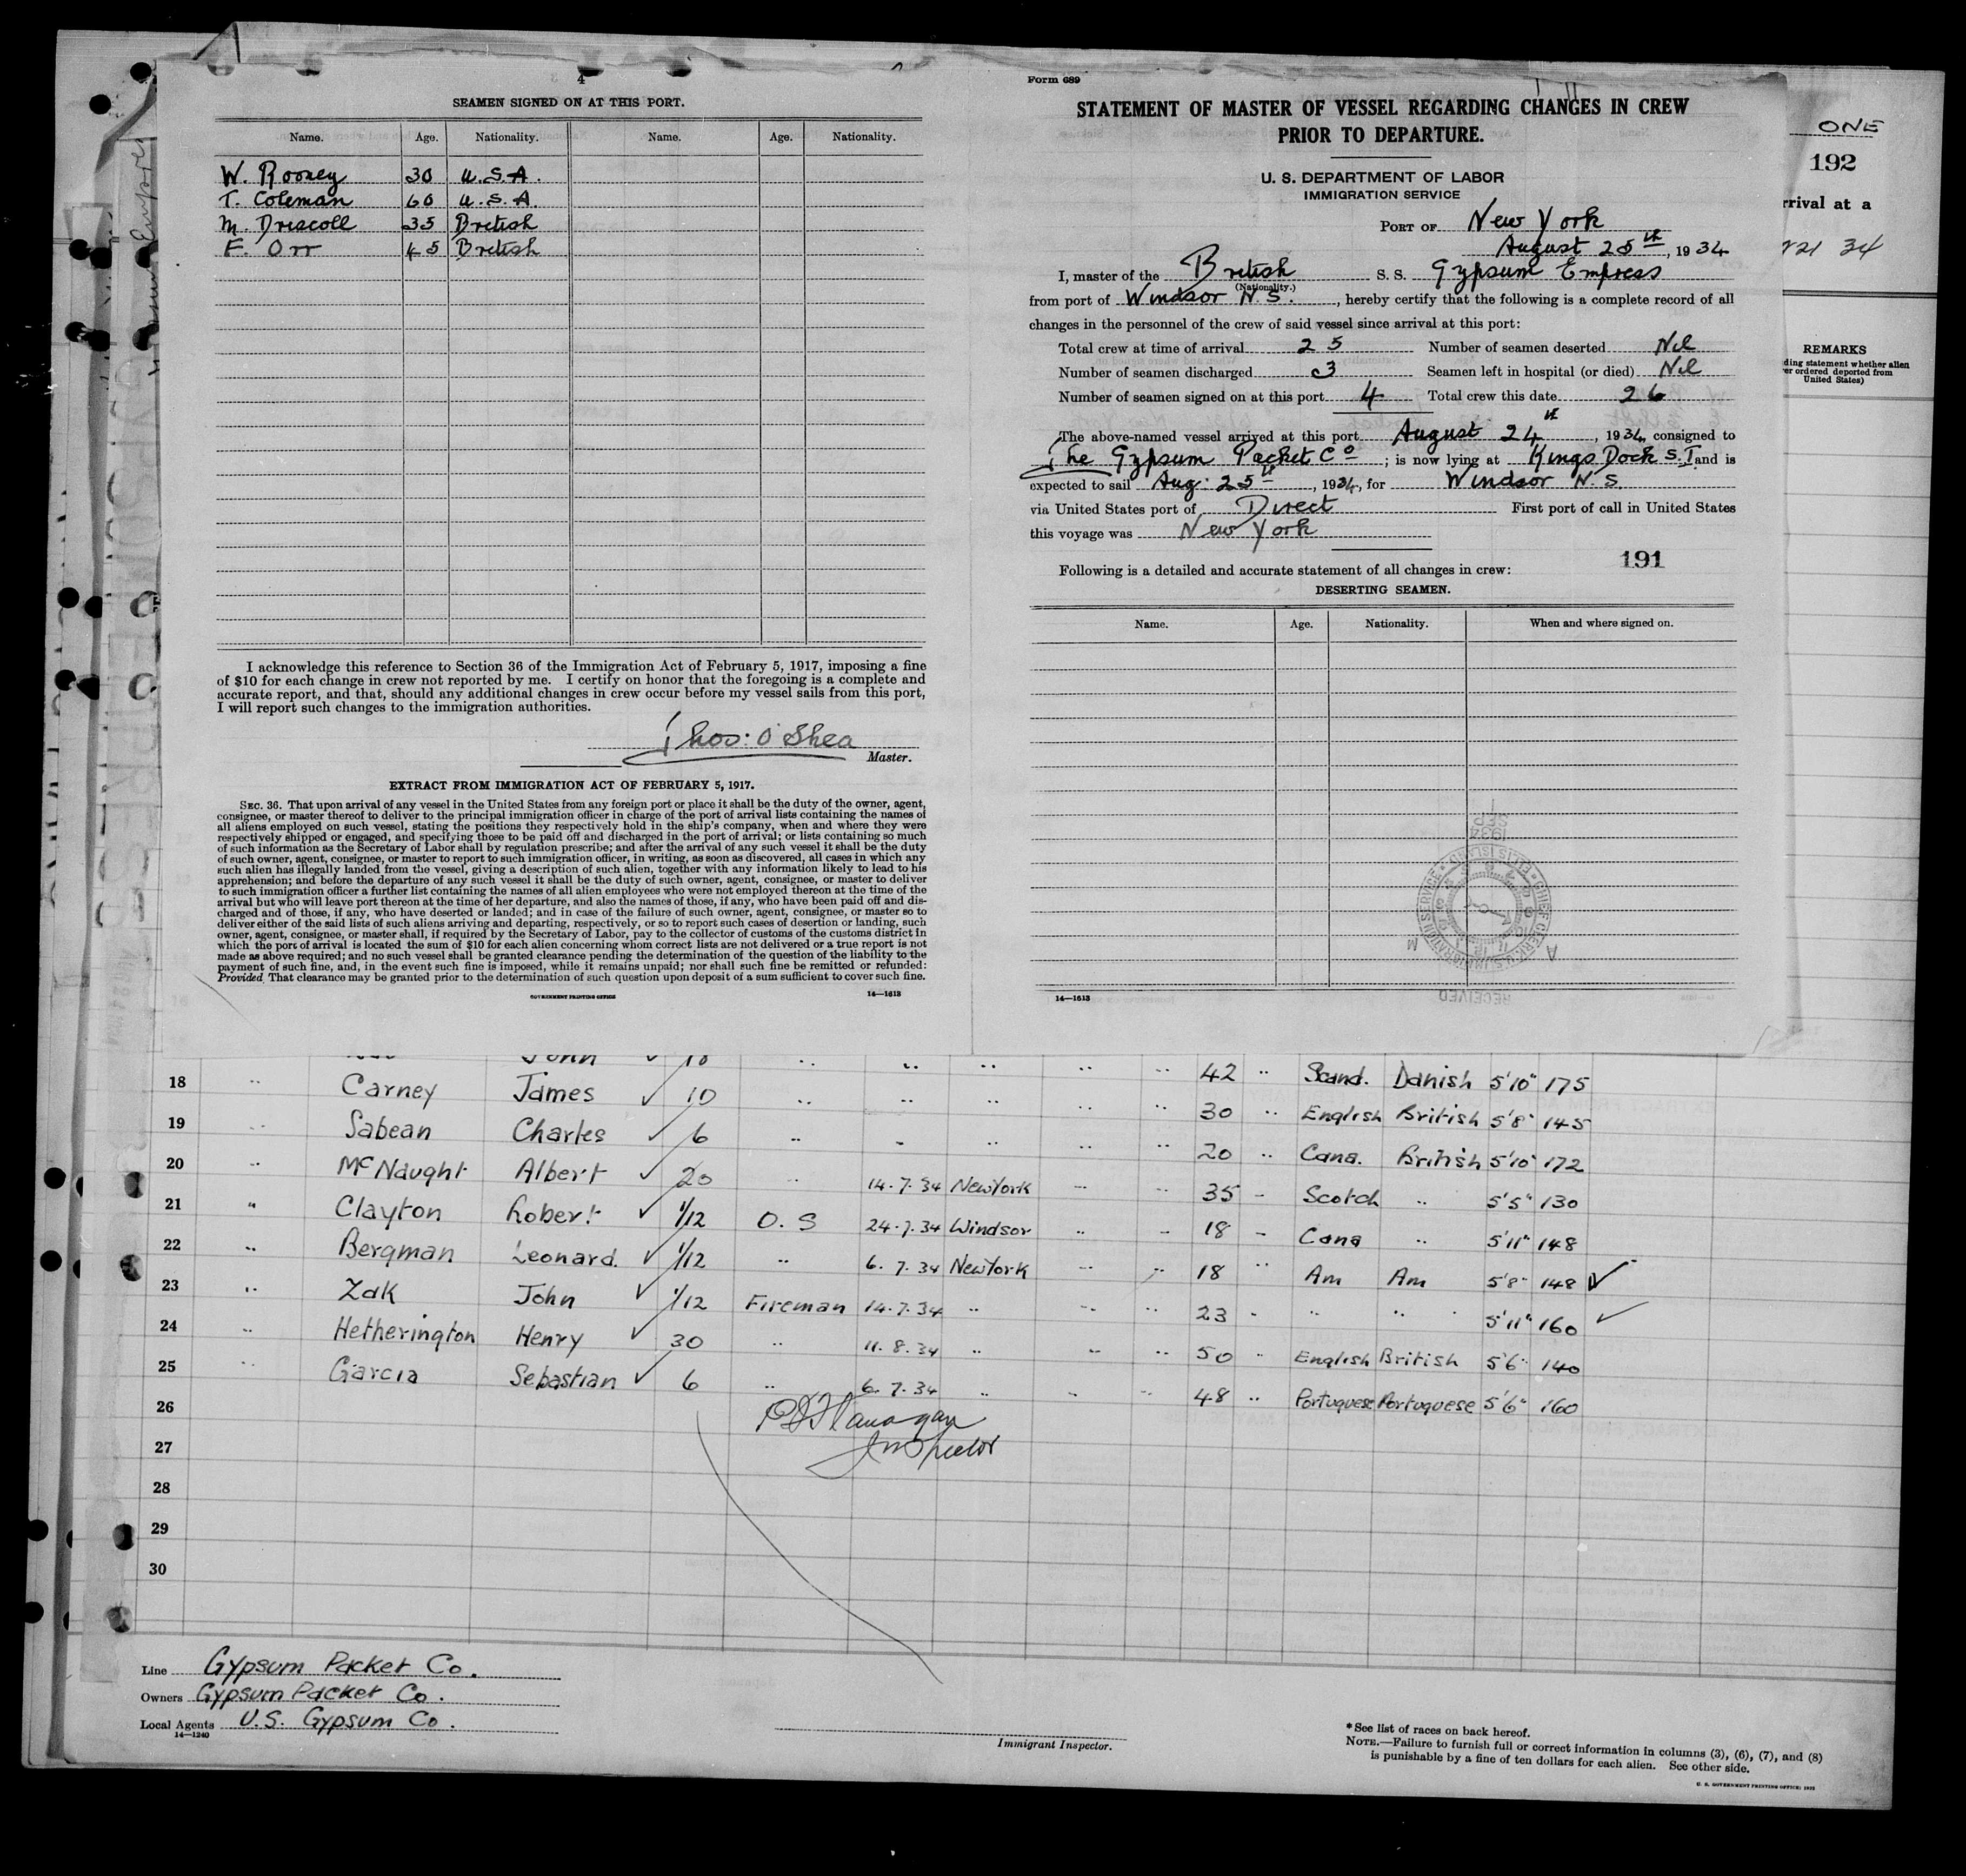 4
SEAMEN SIGNED ON AT THIS PORT.
Name. Age. Nationality. Name. Age. Nationality.
W. Rooney 30 U.S.A.
T. Coleman 60 U.S.A.
M. Driscoll 35 British
F. Orr 45 British
I acknowledge this reference to Section 36 of the Immigration Act of February 5, 1917, imposing a fine
of $10 for each change in crew not reported by me. I certify on honor that the foregoing is a complete and
accurate report, and that, should any additional changes in crew occur before my vessel sails from this port,
I will report such changes to the immigration authorities.
Thos: O'Shea
Master.
EXTRACT FROM IMMIGRATION ACT OF FEBRUARY 5, 1917.
SEC. 36. That upon arrival of any vessel in the United States from any foreign port or place it shall be the duty of the owner, agent,
consignee, or master thereof to deliver to the principal immigration officer in charge of the port of arrival lists containing the names of
all aliens employed on such vessel, stating the positions they respectively hold in the ship's company, when and where they were
respectively shipped or engaged, and specifying those to be paid off and discharged in the port of arrival; or lists containing so much
of such information as the Secretary of Labor shall by regulation prescribe; and after the arrival of any such vessel it shall be the duty
of such owner, agent, consignee, or master to report to such immigration officer, in writing, as soon as discovered, all cases in which any
such alien has illegally landed from the vessel, giving a description of such alien, together with any information likely to lead to his
apprehension; and before the departure of any such vessel it shall be the duty of such owner, agent, consignee, or master to deliver
to such immigration officer a further list containing the names of all alien employees who were not employed thereon at the time of the
arrival but who will leave port thereon at the time of her departure, and also the names of those, if any, who have been paid off and dis-
charged and of those, if any, who have deserted or landed; and in case of the failure of such owner, agent, consignee, or master so to
deliver either of the said lists of such aliens arriving and departing, respectively, or so to report such cases of desertion or landing, such
owner, agent, consignee, or master shall, if required by the Secretary of Labor, pay to the collector of customs of the customs district in
which the port of arrival is located the sum of $10 for each alien concerning whom correct lists are not delivered or a true report is not
made as above required; and no such vessel shall be granted clearance pending the determination of the question of the liability to the
payment of such fine, and, in the event such fine is imposed, while it remains unpaid; nor shall such fine be remitted or refunded:
Provided, That clearance may be granted prior to the determination of such question upon deposit of a sum sufficient to cover such fine.
GOVERNMENT PRINTING OFFICE 14—1613
Form 689
STATEMENT OF MASTER OF VESSEL REGARDING CHANGES IN CREW
PRIOR TO DEPARTURE.
U. S. DEPARTMENT OF LABOR
IMMIGRATION SERVICE
PORT OF New York
August 25th, 1934
I, master of the British S. S. Gypsum Empress
(Nationality.)
from port of Windsor N.S., hereby certify that the following is a complete record of all
changes in the personnel of the crew of said vessel since arrival at this port:
Total crew at time of arrival 25 Number of seamen deserted Nil
Number of seamen discharged 3 Seamen left in hospital (or died) Nil
Number of seamen signed on at this port 4 Total crew this date 26
The above-named vessel arrived at this port August 24th, 1934, consigned to
The Gypsum Packet Co; is now lying at Kings Dock S.I and is
expected to sail Aug: 25th, 1934, for Windsor N.S.
via United States port of Direct First port of call in United States
this voyage was New York
191
Following is a detailed and accurate statement of all changes in crew:
DESERTING SEAMEN.
Name. Age. Nationality. When and where signed on.
1934
SEP
CHIEF CLERK U.S. IMMIGRATION SERVICE ELLIS ISLAND
A M
RECEIVED
14—1613
ONE
192
rrival at a
21 34
REMARKS
ding statement whether alien
er ordered deported from
United States)
John 18 " " " " " 42 " Scand. Danish 5'10" 175
18 " Carney James ✓ 10 " " " " " 30 " English British 5'8" 145
19 " Sabean Charles ✓ 6 " " " " " 20 " Cana. British 5'10" 172
20 " McNaught Albert ✓ 20 " 14.7.34 New York " " 35 " Scotch " 5'5" 130
21 " Clayton Robert ✓ 1/12 O.S 24.7.34 Windsor " " 18 " Cana " 5'11" 148
22 " Bergman Leonard. ✓ 1/12 " 6.7.34 New York " " 18 " Am Am 5'8" 148 ✓
23 " Zak John ✓ 1/12 Fireman 14.7.34 " " " 23 " " " 5'11" 160 ✓
24 " Hetherington Henry ✓ 30 " 11.8.34 " " " 50 " English British 5'6" 140
25 " Garcia Sebastian ✓ 6 " 6.7.34 " " " 48 " Portuguese Portuguese 5'6" 160
26
Flanagan
27
Inspector
28
29
30
Line Gypsum Packet Co.
Owners Gypsum Packet Co.
Local Agents U.S. Gypsum Co.
14—1240
Immigrant Inspector.
*See list of races on back hereof.
NOTE.—Failure to furnish full or correct information in columns (3), (6), (7), and (8)
is punishable by a fine of ten dollars for each alien. See other side.
U. S. GOVERNMENT PRINTING OFFICE: 1932